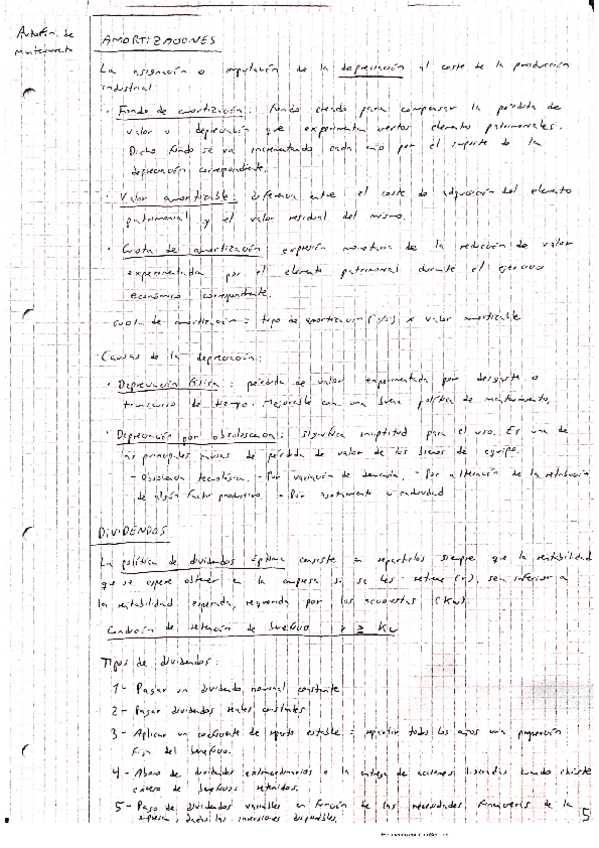 Autofin. de
mantenimiento
AMORTIZACIONES
La asignación o imputación de la depreciación al coste de la producción
industrial
· Fondo de amortización: Fondo creado para compensar la pérdida de
valor o depreciación que experimentan ciertos elementos patrimoniales.
Dicho fondo se va incrementando cada año por el importe de la
depreciación correspondiente.
· Valor amortizable: diferencia entre el coste de adquisición del elemento
patrimonial y el valor residual del mismo.
· Cuota de amortización: expresión monetaria de la reducción de valor
experimentada por el elemento patrimonial durante el ejercicio
económico correspondiente.
cuota de amortización = tipo de amortización (%) x valor amortizable
Causas de la depreciación:
· Depreciación física: pérdida de valor experimentada por desgaste o
transcurso de tiempo. Mejorable con una buena política de mantenimiento.
· Depreciación por obsolescencia: significa ineptitud para el uso. Es una de
las principales causas de pérdida de valor de los bienes de equipo.
- Obsolescencia tecnológica. - Por variación de demanda. - Por alteración de la retribución
de algún factor productivo. - Por agotamiento o caducidad
DIVIDENDOS
La política de dividendos óptima consiste en repartirlos siempre que la rentabilidad
que se espere obtener en la empresa si se les retiene (r), sea inferior a
la rentabilidad esperada, requerida por los accionistas (Ku)
Condición de retención de beneficio r ≥ Ku
Tipos de dividendos:
1- Pagar un dividendo nominal constante
2- Pagar dividendos reales constantes
3- Aplicar un coeficiente de reparto estable: repartir todos los años una proporción
fija del beneficio.
4- Abono de dividendos extraordinarios o la entrega de acciones liberadas cuando existe
exceso de beneficios retenidos.
5- Pago de dividendos variables en función de las necesidades financieras de la
empresa, dadas las inversiones disponibles.
5